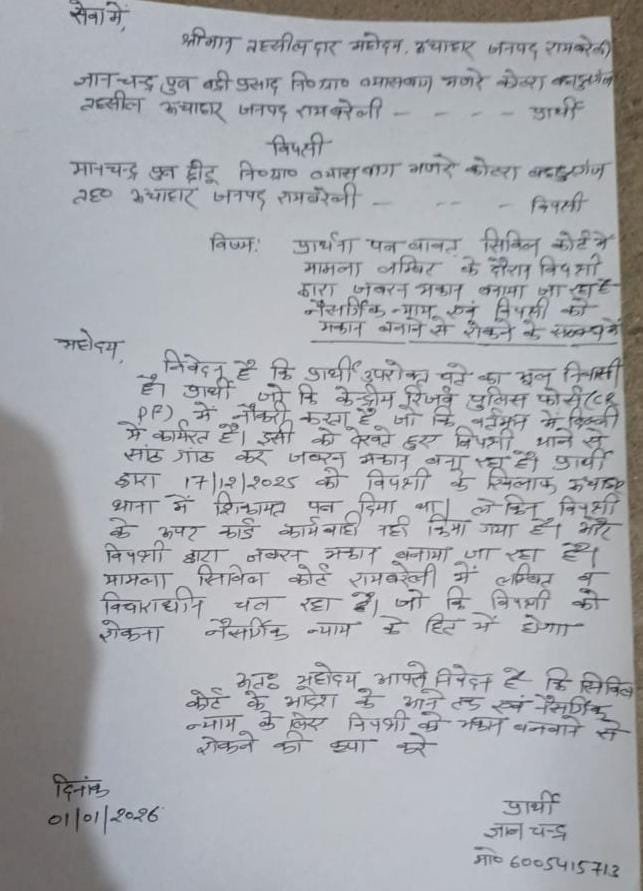 सेवा में,
श्रीमान तहसीलदार महोदय, ऊंचाहार जनपद रायबरेली
ज्ञानचन्द्र पुत्र बद्री प्रसाद नि०ग्रा० व्यासबाग मजरे कोटरा बहादुरगंज
तहसील ऊंचाहार जनपद रायबरेली - - - - - प्रार्थी
विपक्षी
मानचन्द्र पुत्र छीटू नि०ग्रा० व्यासबाग मजरे कोटरा बहादुरगंज
तह० ऊंचाहार जनपद रायबरेली - - - - विपक्षी
विषय: प्रार्थना पत्र बाबत् सिविल कोर्ट में
मामला लम्बित के दौरान विपक्षी
द्वारा जबरन मकान बनाया जा रहा है
नैसर्गिक न्याय एवं विपक्षी को
मकान बनाने से रोकने के सम्बन्ध में
महोदय,
निवेदन है कि प्रार्थी उपरोक्त पते का मूल निवासी
है। प्रार्थी जो कि केन्द्रीय रिजर्व पुलिस फोर्स (CR
PF) में नौकरी करता है जो कि वर्तमान में दिल्ली
में कार्यरत है। इसी को देखते हुए विपक्षी थाने से
सांठ गांठ कर जबरन मकान बना रहा है। प्रार्थी
द्वारा 17/12/2025 को विपक्षी के खिलाफ ऊंचाहार
थाना में शिकायत पत्र दिया था। लेकिन विपक्षी
के ऊपर कोई कार्यवाही नही किया गया है। और
विपक्षी द्वारा जबरन मकान बनाया जा रहा है।
मामला सिविल कोर्ट रायबरेली में लम्बित व
विचाराधीन चल रहा है। जो कि विपक्षी को
रोकना नैसर्गिक न्याय के हित में होगा
अतः महोदय आपसे निवेदन है कि सिविल
कोर्ट के आदेश के आने तक एवं नैसर्गिक
न्याय के लिए विपक्षी को मकान बनवाने से
रोकने की कृपा करे
दिनांक
01/01/2026
प्रार्थी
ज्ञान चन्द्र
मो० 6005415713